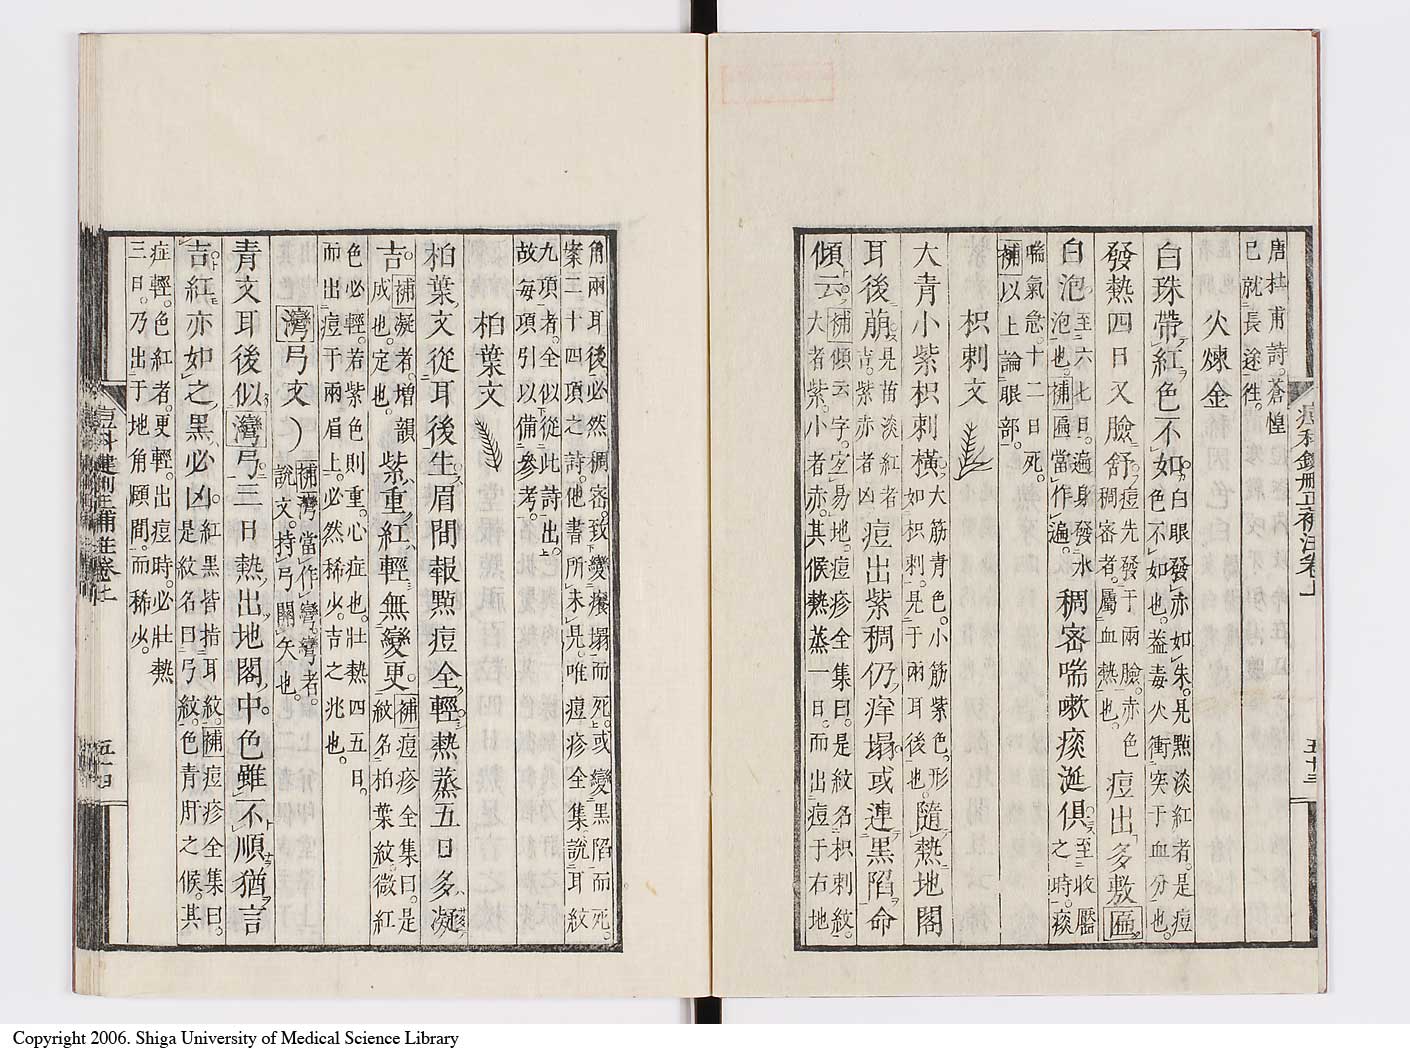 唐杜甫詩。蒼惶
已就長途徃。
火煉金
白珠帶紅色不如白眼發赤如朱。見點淡紅者。是痘
色不如也。葢毒火衝突于血分也。
發熱四日又臉舒痘先發于兩臉。赤色
稠密者。屬血熱也。痘出多敷匾
白泡至六七日。遍身發水
泡也。補匾當作遍。稠密喘嗽痰涎俱至收靨
之時。痰
喘氣急。十二日死。
補以上論眼部。
枳刺文
大青小紫枳刺橫大筋青色。小筋紫色。形
如枳刺。見于兩耳後也。隨熱地閣
耳後崩見苗淡紅者
吉。紫赤者凶。痘出紫稠仍痒塌或連黒陷命
傾云補傾云字。宜易地。痘疹全集曰。是紋名枳刺紋。
大者紫。小者赤。其候熱蒸一日。而出痘于右地
痘科鍵刪正補注卷上
五十三
角兩耳後必然稠密。致變癢塌而死。或變黒陷而死。
案二十四項之詩。他書所未見。唯痘疹全集說耳紋
九項者。全似從此詩出。
故每項引以備參考。
柏葉文
柏葉文從耳後生眉間報㸃痘全輕熱蒸五日多凝
吉補凝者。增韻
成也。定也。紫重紅輕無變更補痘疹全集曰。是
紋名柏葉紋。微紅
色必輕。若紫色則重。心症也。壯熱四五日。
而出痘于兩眉上。必然稀少。吉之兆也。
灣弓文
補灣當作彎。彎者。
說文。持弓關矢也。
青文耳後似灣弓三日熱出地閣中色雖不順猶言
吉紅亦如之黒必凶紅黒皆指耳紋。補痘疹全集曰。
是紋名曰弓紋。色青肝之候。其
症輕。色紅者。更輕。出痘時。必壯熱
三日。乃出于地角頤間。而稀少。
痘科鍵刪正補注卷上
五十四
Copyright 2006. Shiga University of Medical Science Library